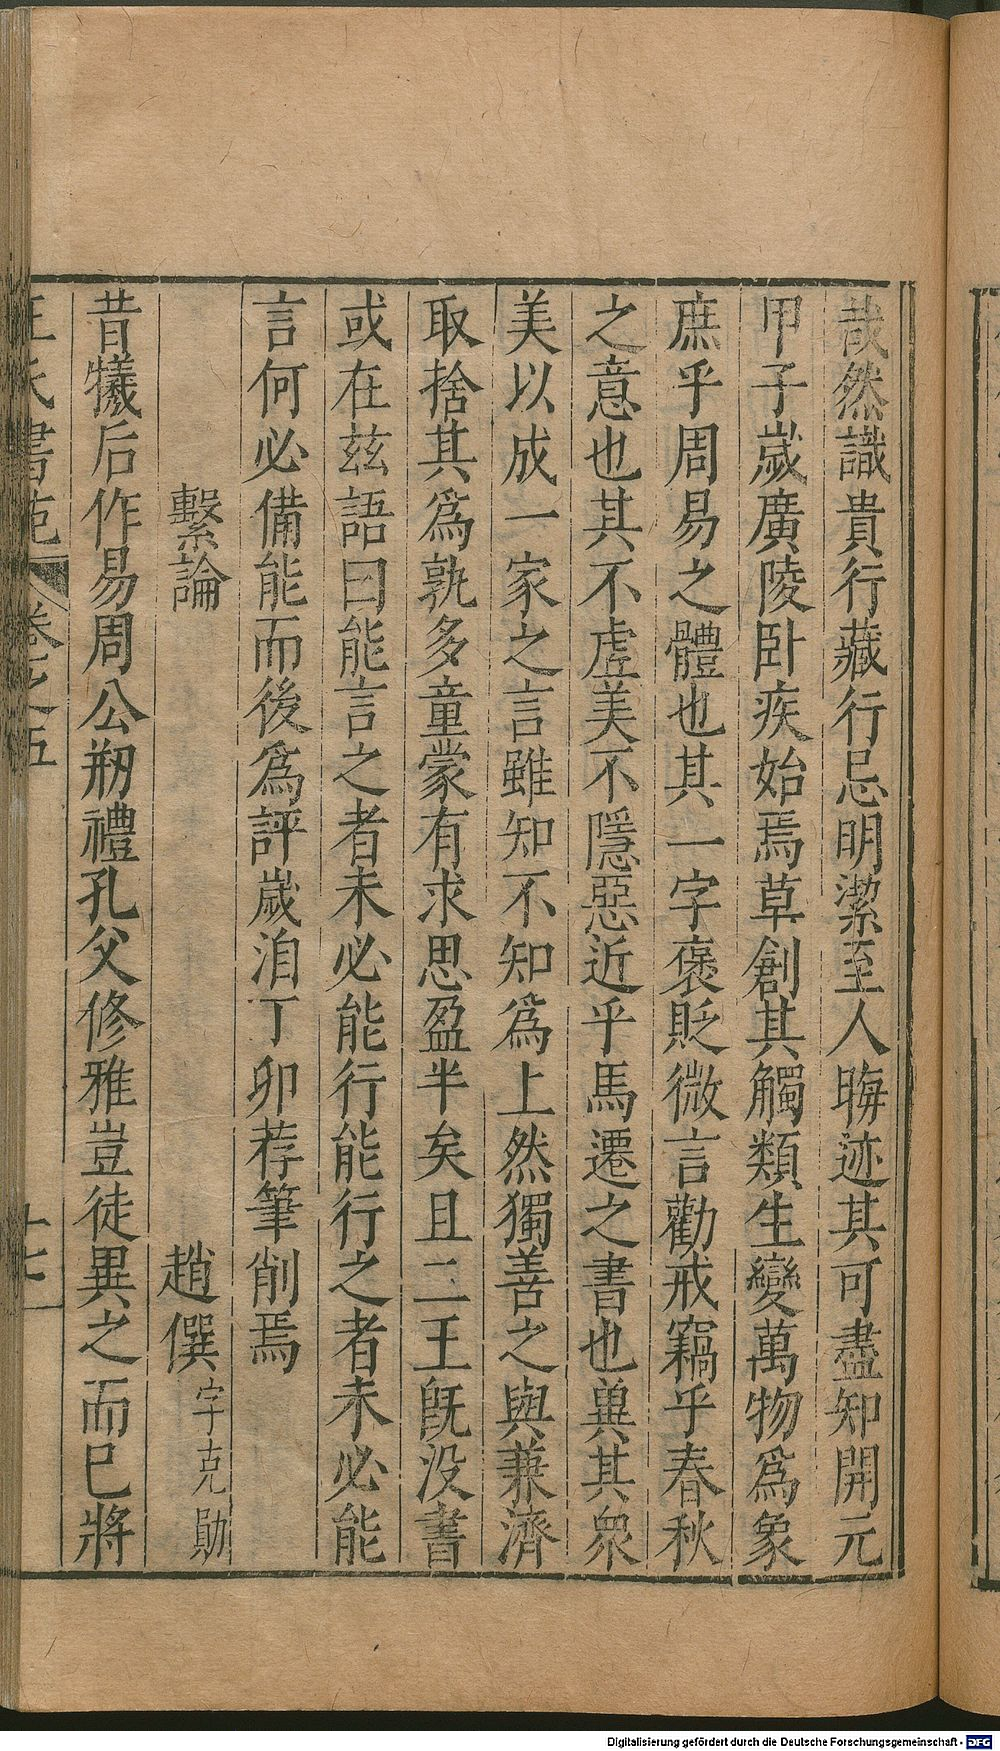 哉然識貴行藏行忌明潔至人晦迹其可盡知開元
甲子歲廣陵卧疾始焉草創其觸類生變萬物爲象
庶乎周易之體也其一字褒貶微言勸戒竊乎春秋
之意也其不虛美不隱惡近乎馬遷之書也兾其衆
美以成一家之言雖知不知爲上然獨善之與兼濟
取捨其爲孰多童蒙有求思盈半矣且二王旣没書
或在玆語曰能言之者未必能行能行之者未必能
言何必備能而後爲評歲洎丁卯荐筆削焉
繫論
趙僎字克勛
昔犧后作易周公剏禮孔父修雅豈徒異之而已將
王氏書苑 卷之五 十七
Digitalisierung gefördert durch die Deutsche Forschungsgemeinschaft - DFG